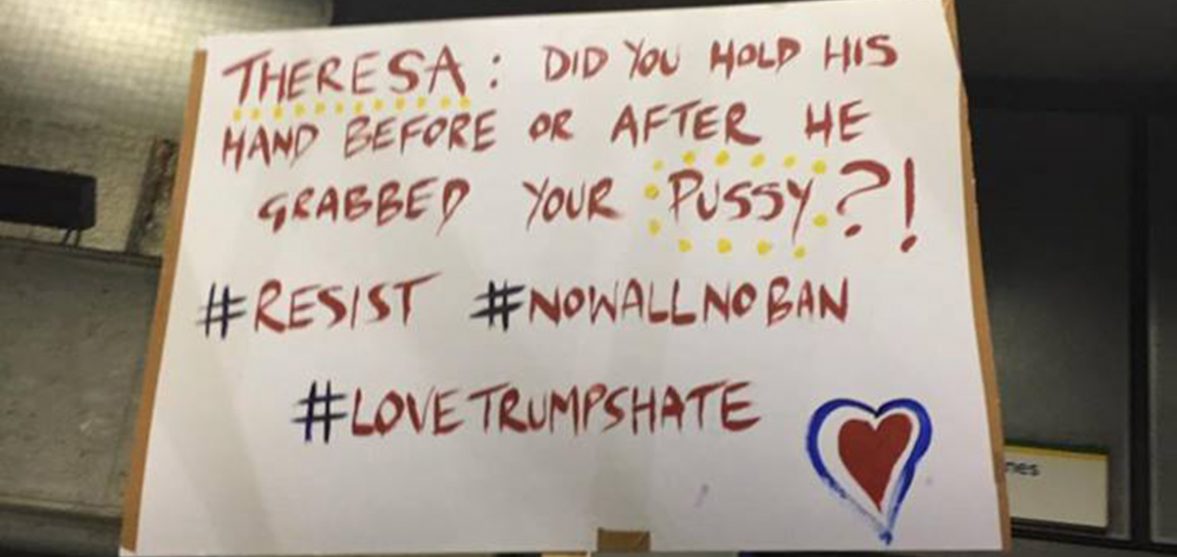 THERESA: DID YOU HOLD HIS
HAND BEFORE OR AFTER HE
GRABBED YOUR PUSSY?!
#RESIST #NOWALLNOBAN
#LOVETRUMPSHATE